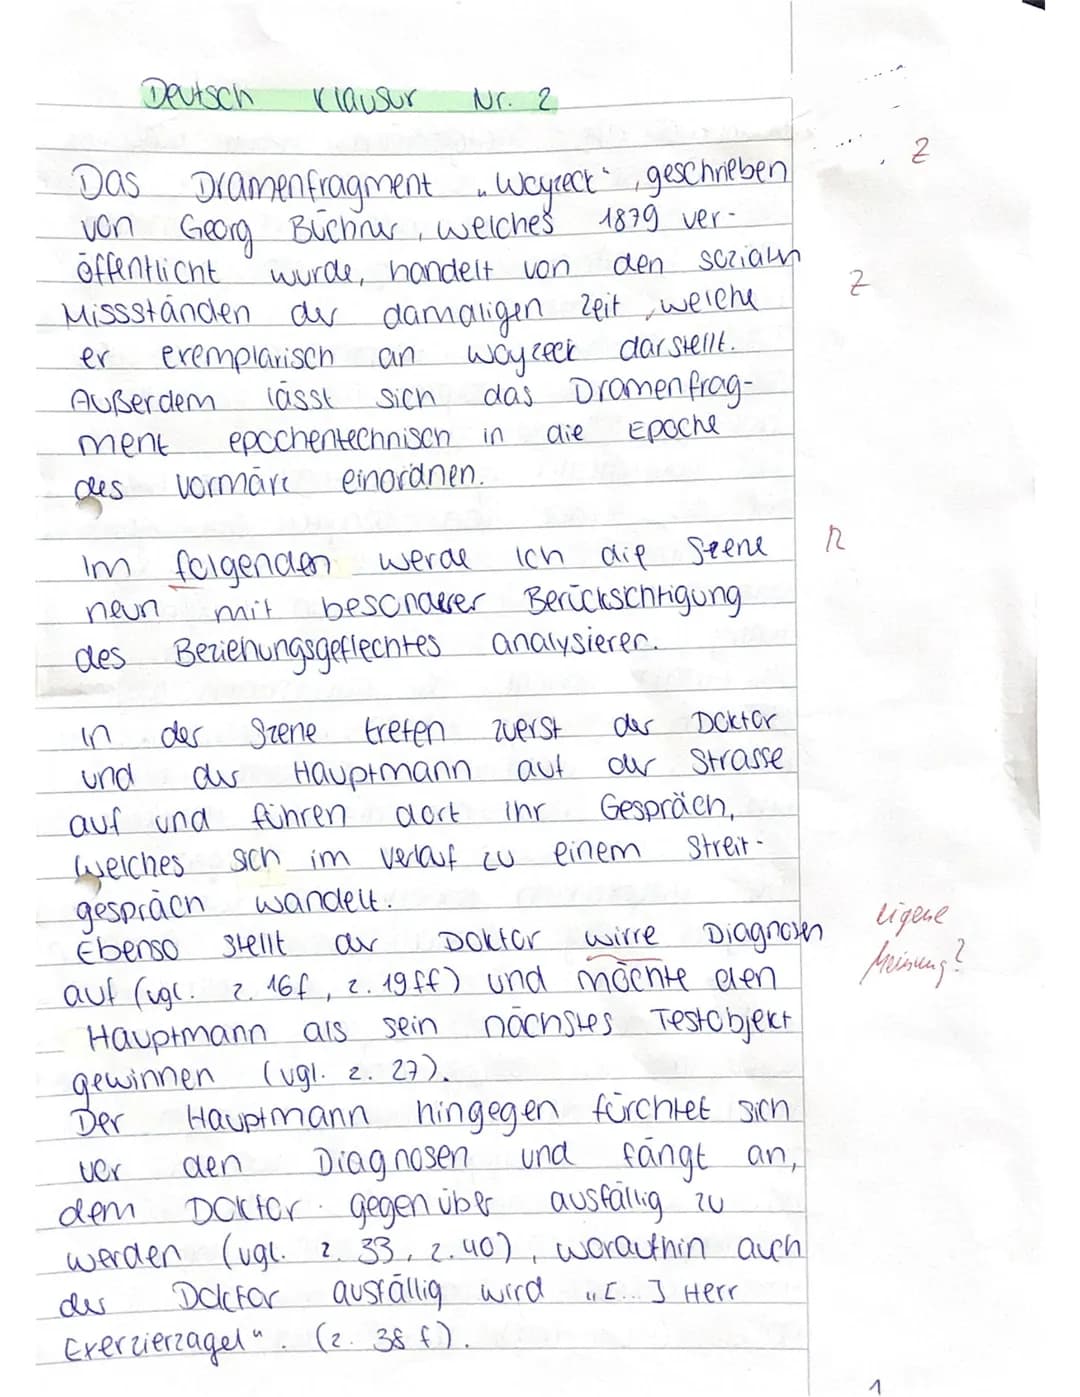 Deutsch Klausur Nr. 2
Z
Das Dramenfragment „Woyzeck“, geschrieben
von Georg Büchner, welches 1879 ver-
öffentlicht wurde, handelt von den sozialen
Z
Missständen der damaligen Zeit, welche
er exemplarisch an Woyzeck darstellt.
Außerdem lässt sich das Dramenfrag-
ment epochentechnisch in die Epoche
des Vormärz einordnen.
Im folgenden werde ich die Szene
R
neun mit besonderer Berücksichtigung
des Beziehungsgeflechtes analysieren.
In der Szene treten zuerst der Doktor
und der Hauptmann auf der Strasse
auf und führen dort ihr Gespräch,
welches sich im Verlauf zu einem Streit-
gespräch wandelt.
Ebenso stellt der Doktor wirre Diagnosen
eigene
Meinung?
auf (vgl. Z. 16f, Z. 19ff) und möchte den
Hauptmann als sein nächstes Testobjekt
gewinnen (vgl. Z. 27).
Der Hauptmann hingegen fürchtet sich
vor den Diagnosen und fängt an,
dem Doktor gegenüber ausfällig zu
werden (vgl. Z. 33, Z. 40), woraufhin auch
der Doktor ausfällig wird „[...] Herr
Exerzierzagel“. (Z. 38 f).
1